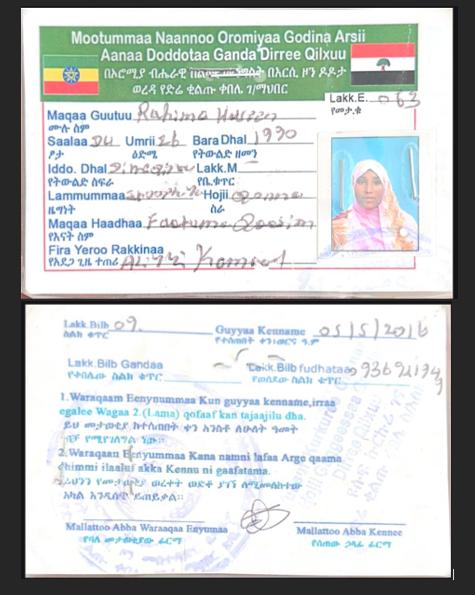 Mootummaa Naannoo Oromiyaa Godina Arsii
Aanaa Doddotaa Ganda Dirree Qilxuu
በኦሮሚያ ብሔራዊ በአርሲ ዞን ዶዶታ
ወረዳ የድሬ ቂልጡ ቀበሌ ገ/ማህበር
Lakk.E. 063
የመታ.ቁ
Maqaa Guutuu Rahima Hussen
ሙሉ ስም
Saalaa Du Umrii 26 Bara Dhal 1990
ፆታ ዕድሜ የትውልድ ዘመን
Iddo. Dhal Lakk.M
የትውልድ ስፍራ የቤ.ቁጥር
Lammummaa Hojii
ዜግነት ስራ
Maqaa Haadhaa Faatuma Qaasim
የእናት ስም
Fira Yeroo Rakkinaa
የአደጋ ጊዜ ተጠሪ
Lakk.Bilb 09. Guyyaa Kenname 05/5/2016
ስልክ ቁጥር የተሰጠበት ቀን/ወር/ዓ.ም
Lakk.Bilb Gandaa Lakk.Bilb fudhataa
የቀበሌው ስልክ ቁጥር የወሰደው ስልክ ቁጥር
1.Waraqaam Eenynummaa Kun guyyaa kenname,irraa
egalee Wagaa 2.(Lama) qofaaf kan tajaajilu dha.
ይህ መታወቂያ ከተሰጠበት ቀን አንስቶ ለሁለት ዓመት
ብቻ የሚያገለግል ነው።
2.Waraqaan Eenynummaa Kana namni lafaa Argo qaama
dhimmi ilaaluf akka Kennu ni gaafatama.
ይህንን የመታወቂያ ወረቀት ወድቆ ያገኘ ለሚመለከተው
አካል እንዲሰጥ ይጠየቃል።
Mallattoo Abba Waraaqaa Enyumaa Mallattoo Abba Kennee
የባለ መታወቂያው ፊርማ የሰጠው ኃላፊ ፊርማ